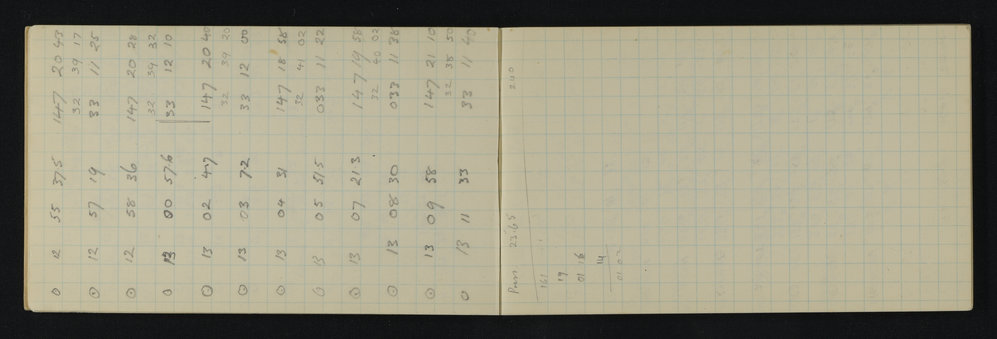 ⊙ 12 55 37.5 147 20 43
32 39 17
⊙ 12 57 19 33 11 25
⊙ 12 58 36 147 20 28
32 39 32
⊙ 13 00 57.6 33 12 10
⊙ 13 02 47 147 20 40
32 39 20
⊙ 13 03 7.2 33 12 00
⊙ 13 04 31 147 18 58
32 41 02
⊙ 13 05 51.5 033 11 22
⊙ 13 07 21.3 147 19 58
32 40 02
⊙ 13 08 30 033 11 38
⊙ 13 09 58 147 21 10
32 38 50
⊙ 13 11 33 33 11 40
23.65
161
19
01 16
14
01 02